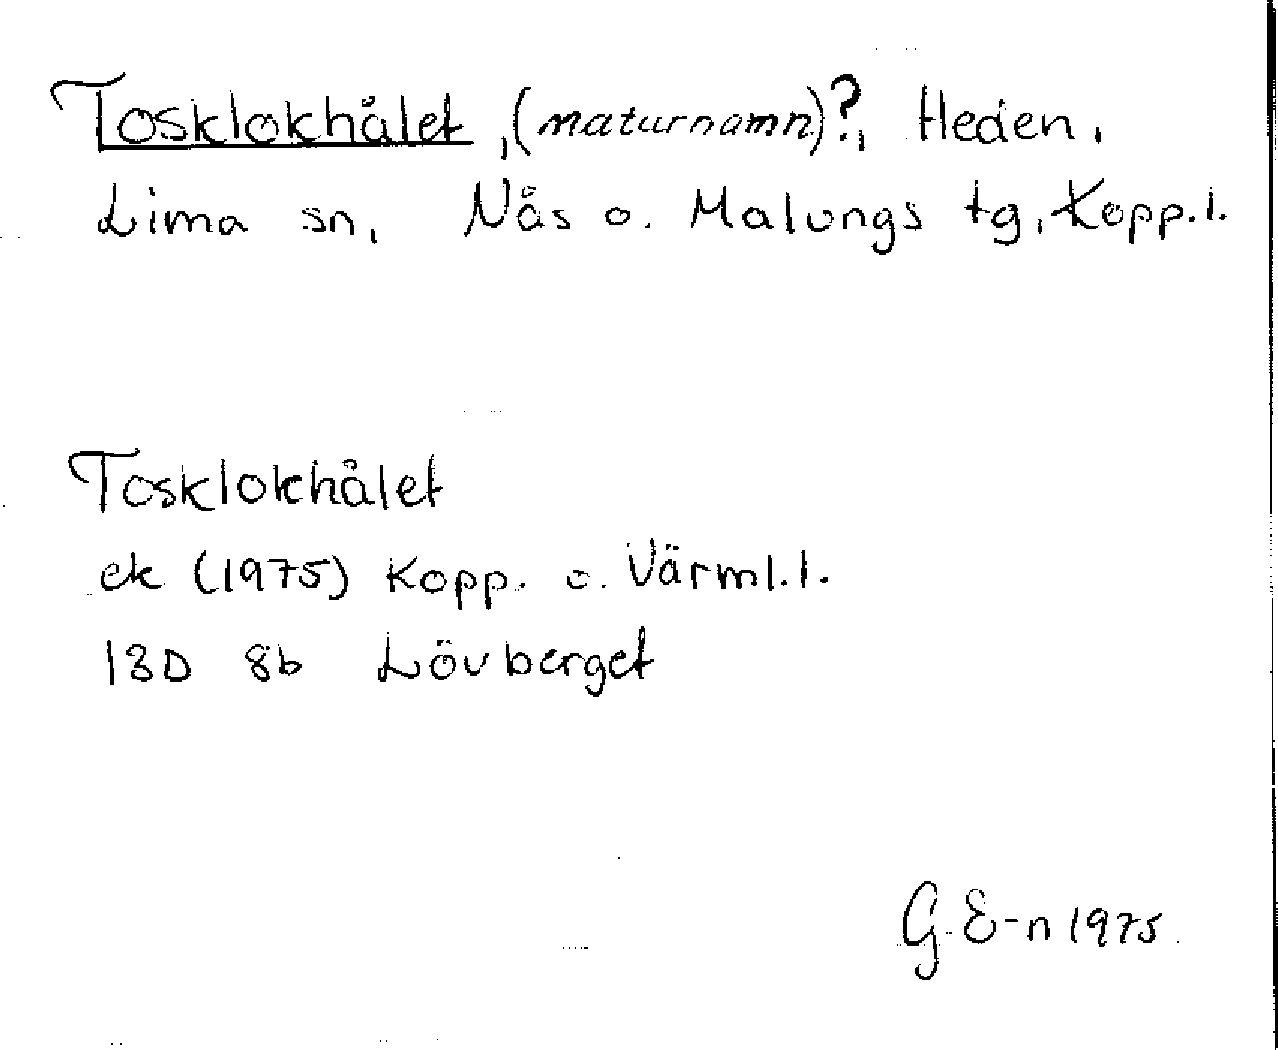 Tosklokhålet, (naturnamn)?, Heden,
Lima sn, Nås o. Malungs tg, Kopp.l.
Tosklokhålet
ek (1975) Kopp. o. Värml.l.
13D 8b Lövberget
G. E-n 1975.